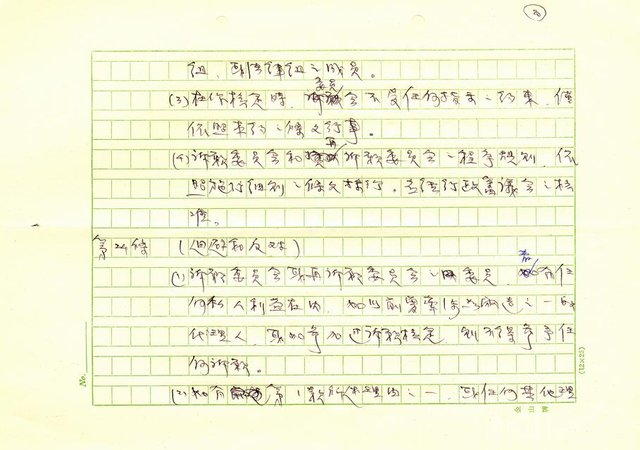 20
組,或法律組之成員。
(3)在作核定時,委員會不受任何指示之約束,僅
依照本約之條文行事。
(4)訴願委員會和再訴願委員會之程序規則,依
照施行細則之條文執行,並經行政審議會之核
准。
第24條 (迴避和反對)
(1)訴願委員會或再訴願委員會之委員,若有任
何私人利益在內,如以前曾為之一的
代理人,或如參加過訴願核定,則不得參予任
何訴願。
(2)如有第1款所理由之一,或任何其他理
No.
(12×25)